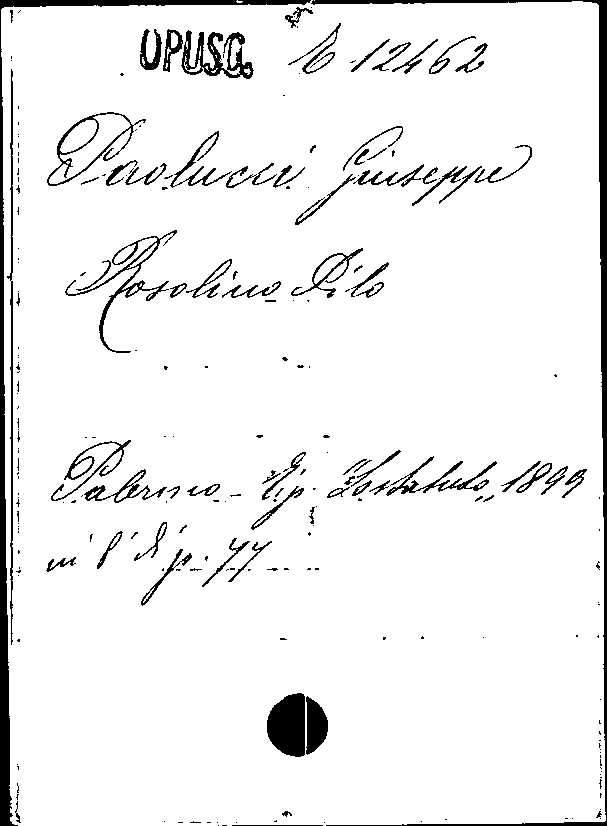 OPUSC. E 12462
Paolucci Giuseppe
Rosolino Pilo
Palermo - Tip. Lo Statuto, 1899
in 8° di p. 77